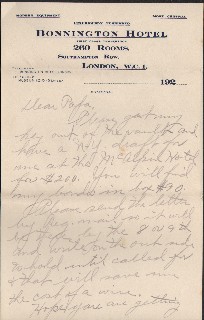 MODERN EQUIPMENT MOST CENTRAL
BONNINGTON HOTEL
260 ROOMS,
SOUTHAMPTON ROW,
LONDON, W.C.1.
192
Dear Papa,
Please get my
key out of the vault and
have a N.Y. draft for
me at the McAlpin Hotel
for $200. You will find
my bonds in box #90.
Please send the letter
by Reg. mail so it will
by the 8 or 9th
and write on the outside
to hold until called for
that will save me
the cost of a wire.
Hope you are getting